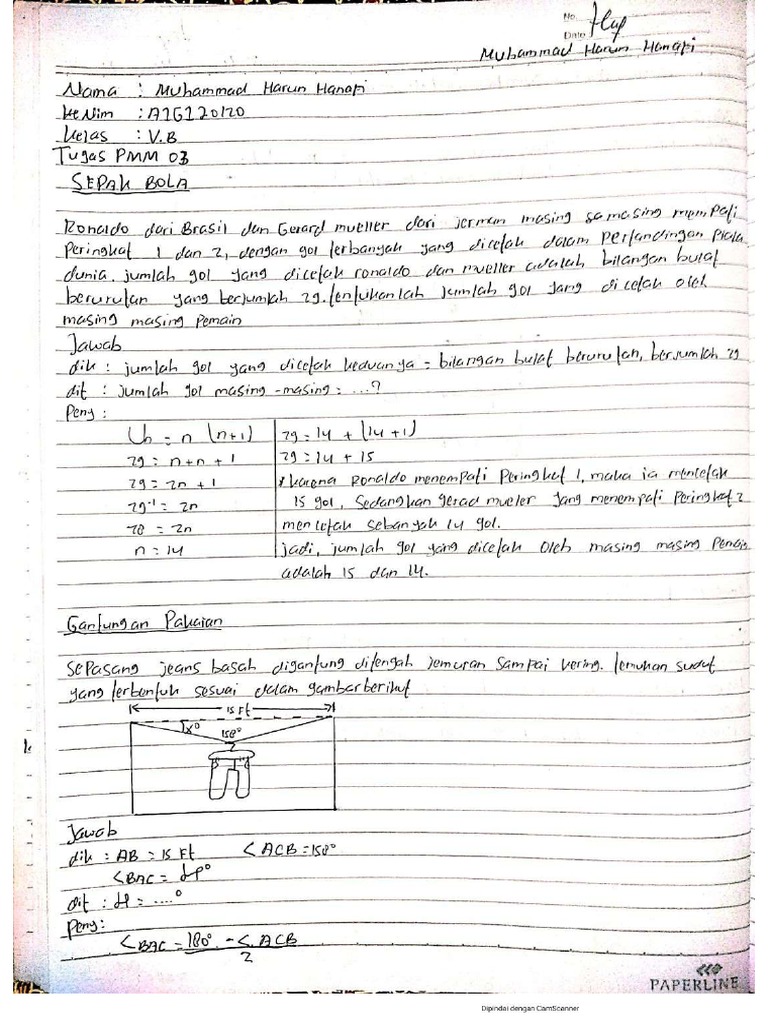 No.
Date
Muhammad Harun Hanapi
Nama : Muhammad Harun Hanapi
Ke Nim : A1G120120
Kelas : V.B
Tugas PMM 03
SEPAK BOLA
Ronaldo dari Brasil dan Gerard mueller dari jerman masing samasing mempati
Peringkat 1 dan 2, dengan gol terbanyak yang dicetak dalam Pertandingan Piala
dunia. jumlah gol yang dicetak ronaldo dan mueller adalah bilangan bulat
berurutan yang berjumlah 29. tentukanlah jumlah gol yang di cetak oleh
masing masing Pemain
Jawab
dik : jumlah gol yang dicetak keduanya = bilangan bulat berurutan, berjumlah 29
dit : jumlah gol masing-masing = ...?
Peny :
Un = n (n+1)
29 = n+n + 1
29 = 2n + 1
29-1 = 2n
28 = 2n
n = 14
29 = 14 + (14 + 1)
29 = 14 + 15
karena Ronaldo menempati Peringkat 1, maka ia mencetak
15 gol, Sedangkan gerad mueler yang menempati Peringkat 2
mencetak sebanyak 14 gol.
jadi, jumlah gol yang dicetak oleh masing masing Pemain
adalah 15 dan 14.
Gantungan Pakaian
Sepasang jeans basah digantung ditengah jemuran Sampai kering. temukan sudut
yang terbentuk sesuai dalam gambar berikut
15 Ft
x°
158°
Jawab
dik : AB = 15 Ft <ACB = 158°
<BAC = x°
dit : x = ....°
Peny:
<BAC = 180° - <ACB
2
PAPERLINE
Dipindai dengan CamScanner